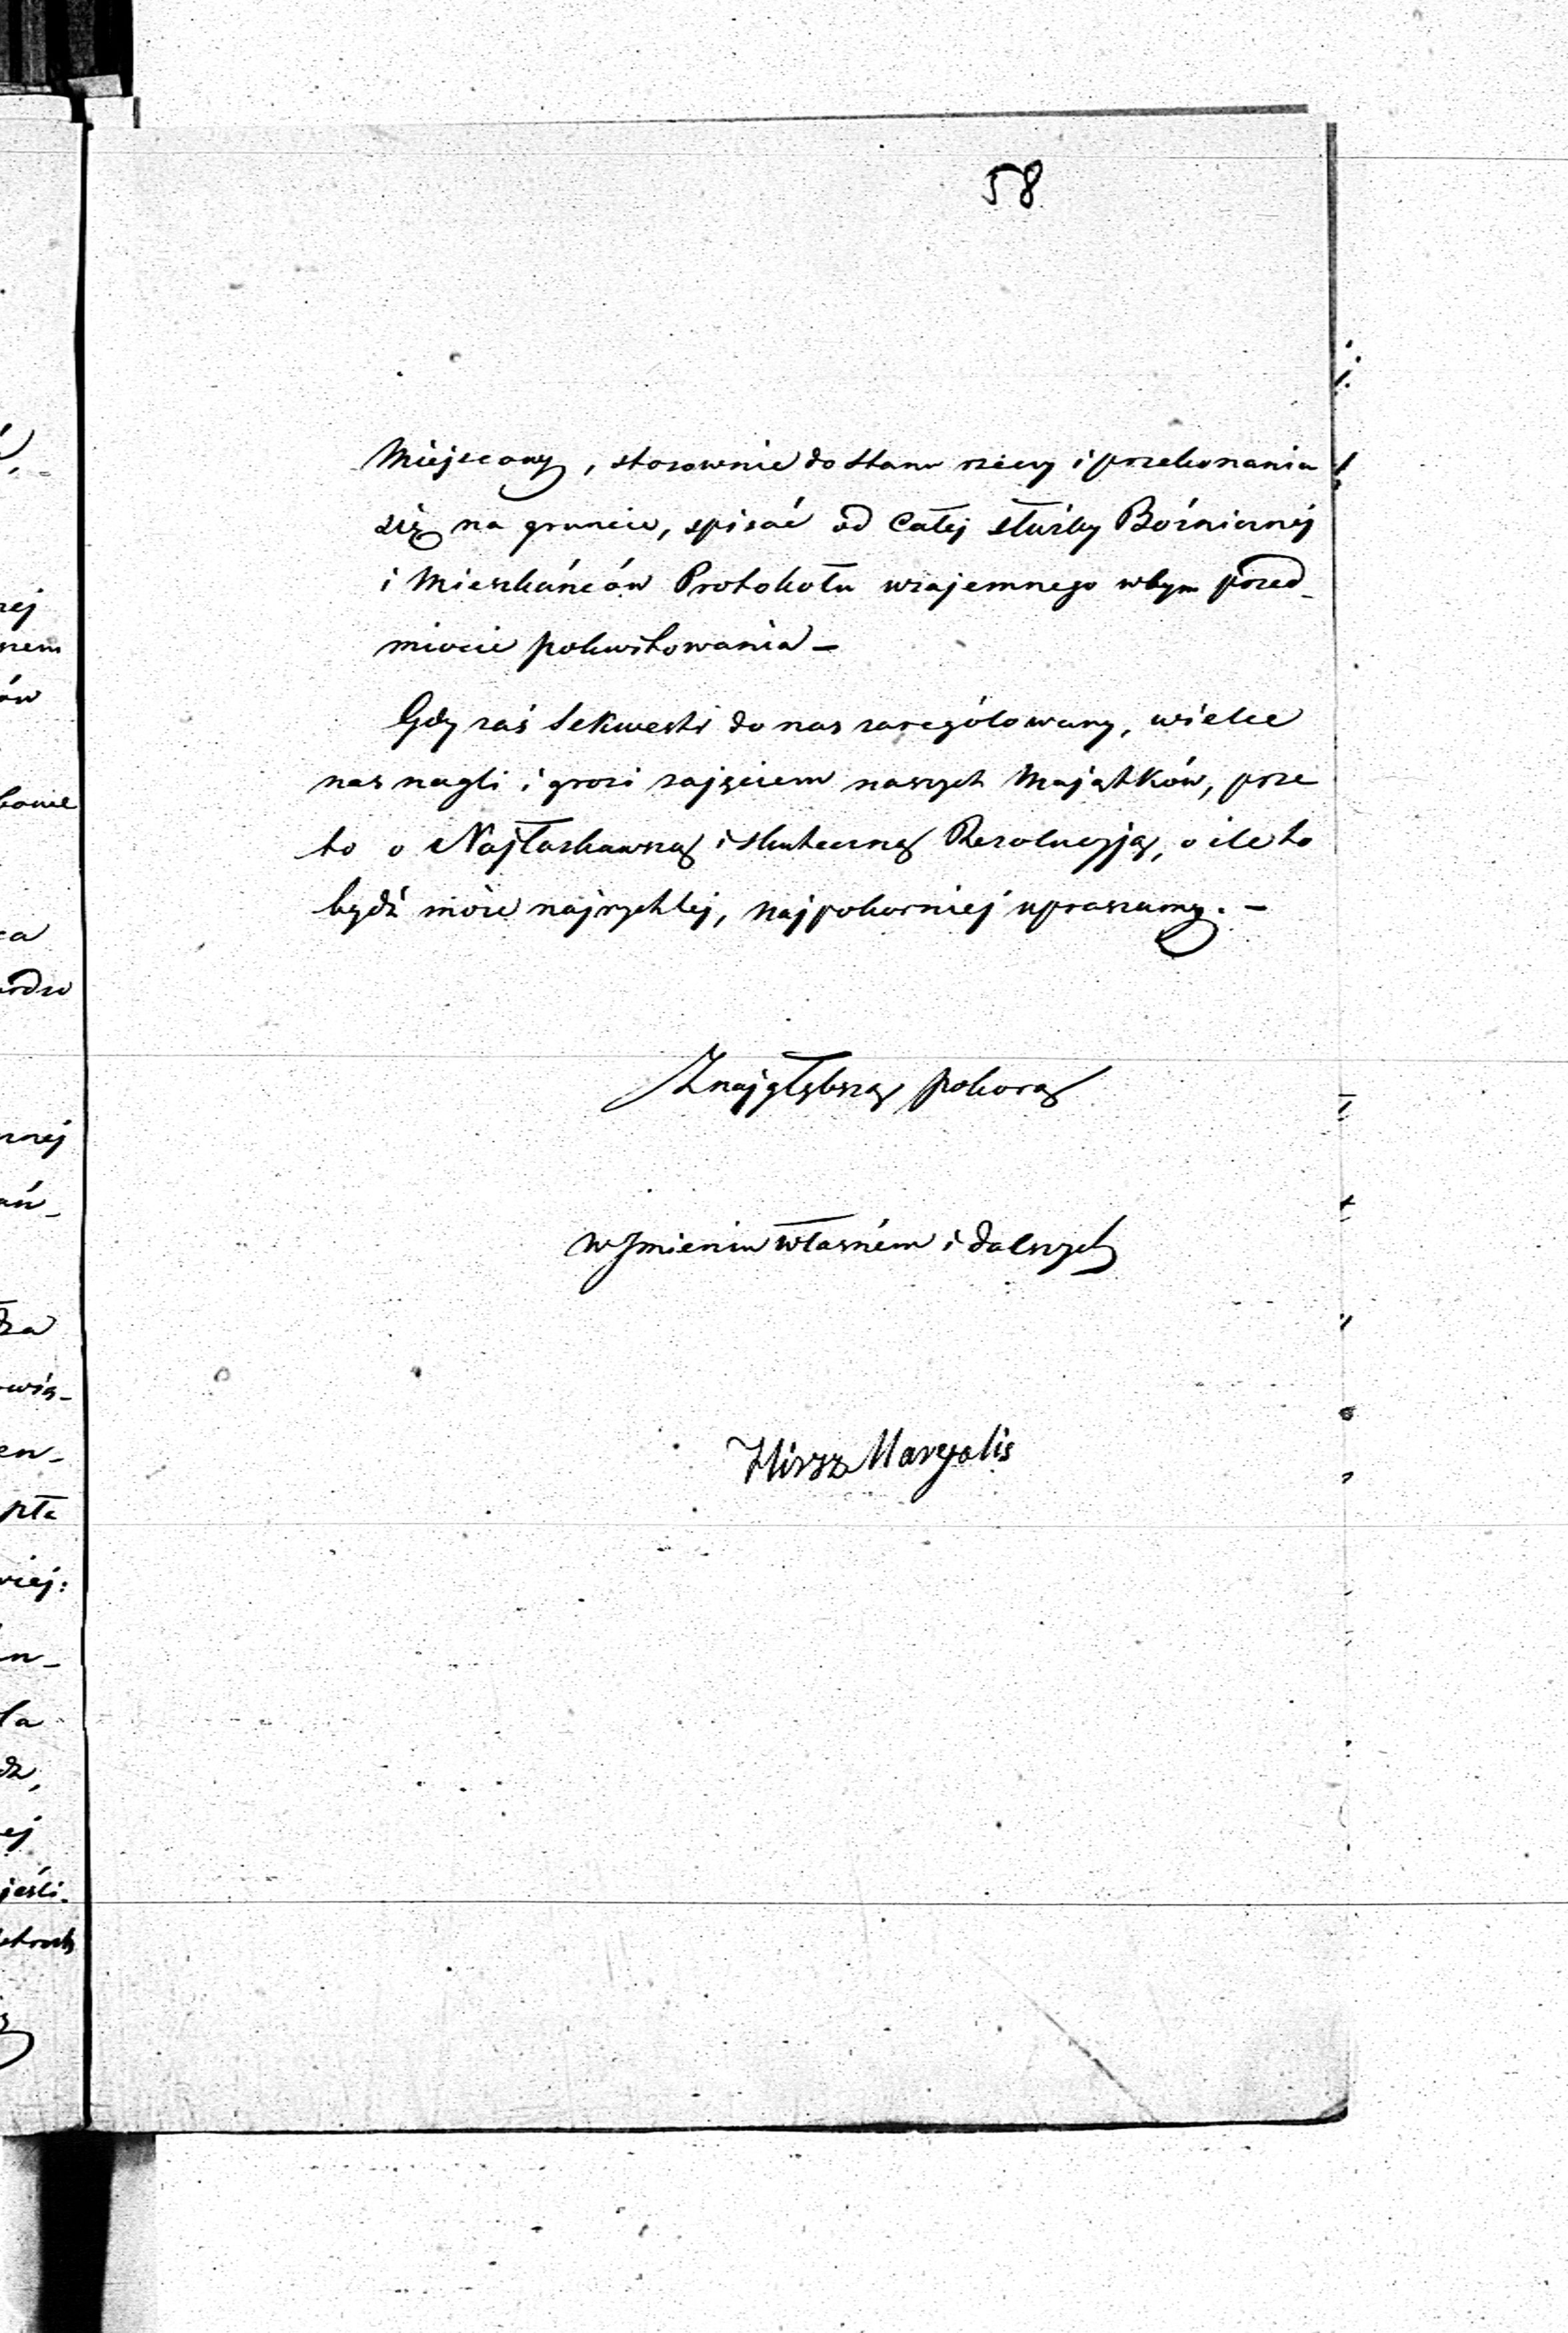 58
Miejscowy, stosownie do stanu rzeczy i przekonania
się na gruncie, spisać od Całej służby Bóźnicznéj
i Mieszkańców Protokołu wzajemnego w tym przed_
miocie pokwitowania –
Gdy zaś Sekwestr do nas zarególowany, wielce
nas nagli i grozi zajęciem naszych Majątków, prze
to o Najłaskawszą i skuteczną Rezolucyją, o ile to
bydź może najrychlej, najpokorniej upraszamy. –
Z najgłębszą pokorą
w Jmieniu własném i dalszych
Hirsz Margolis